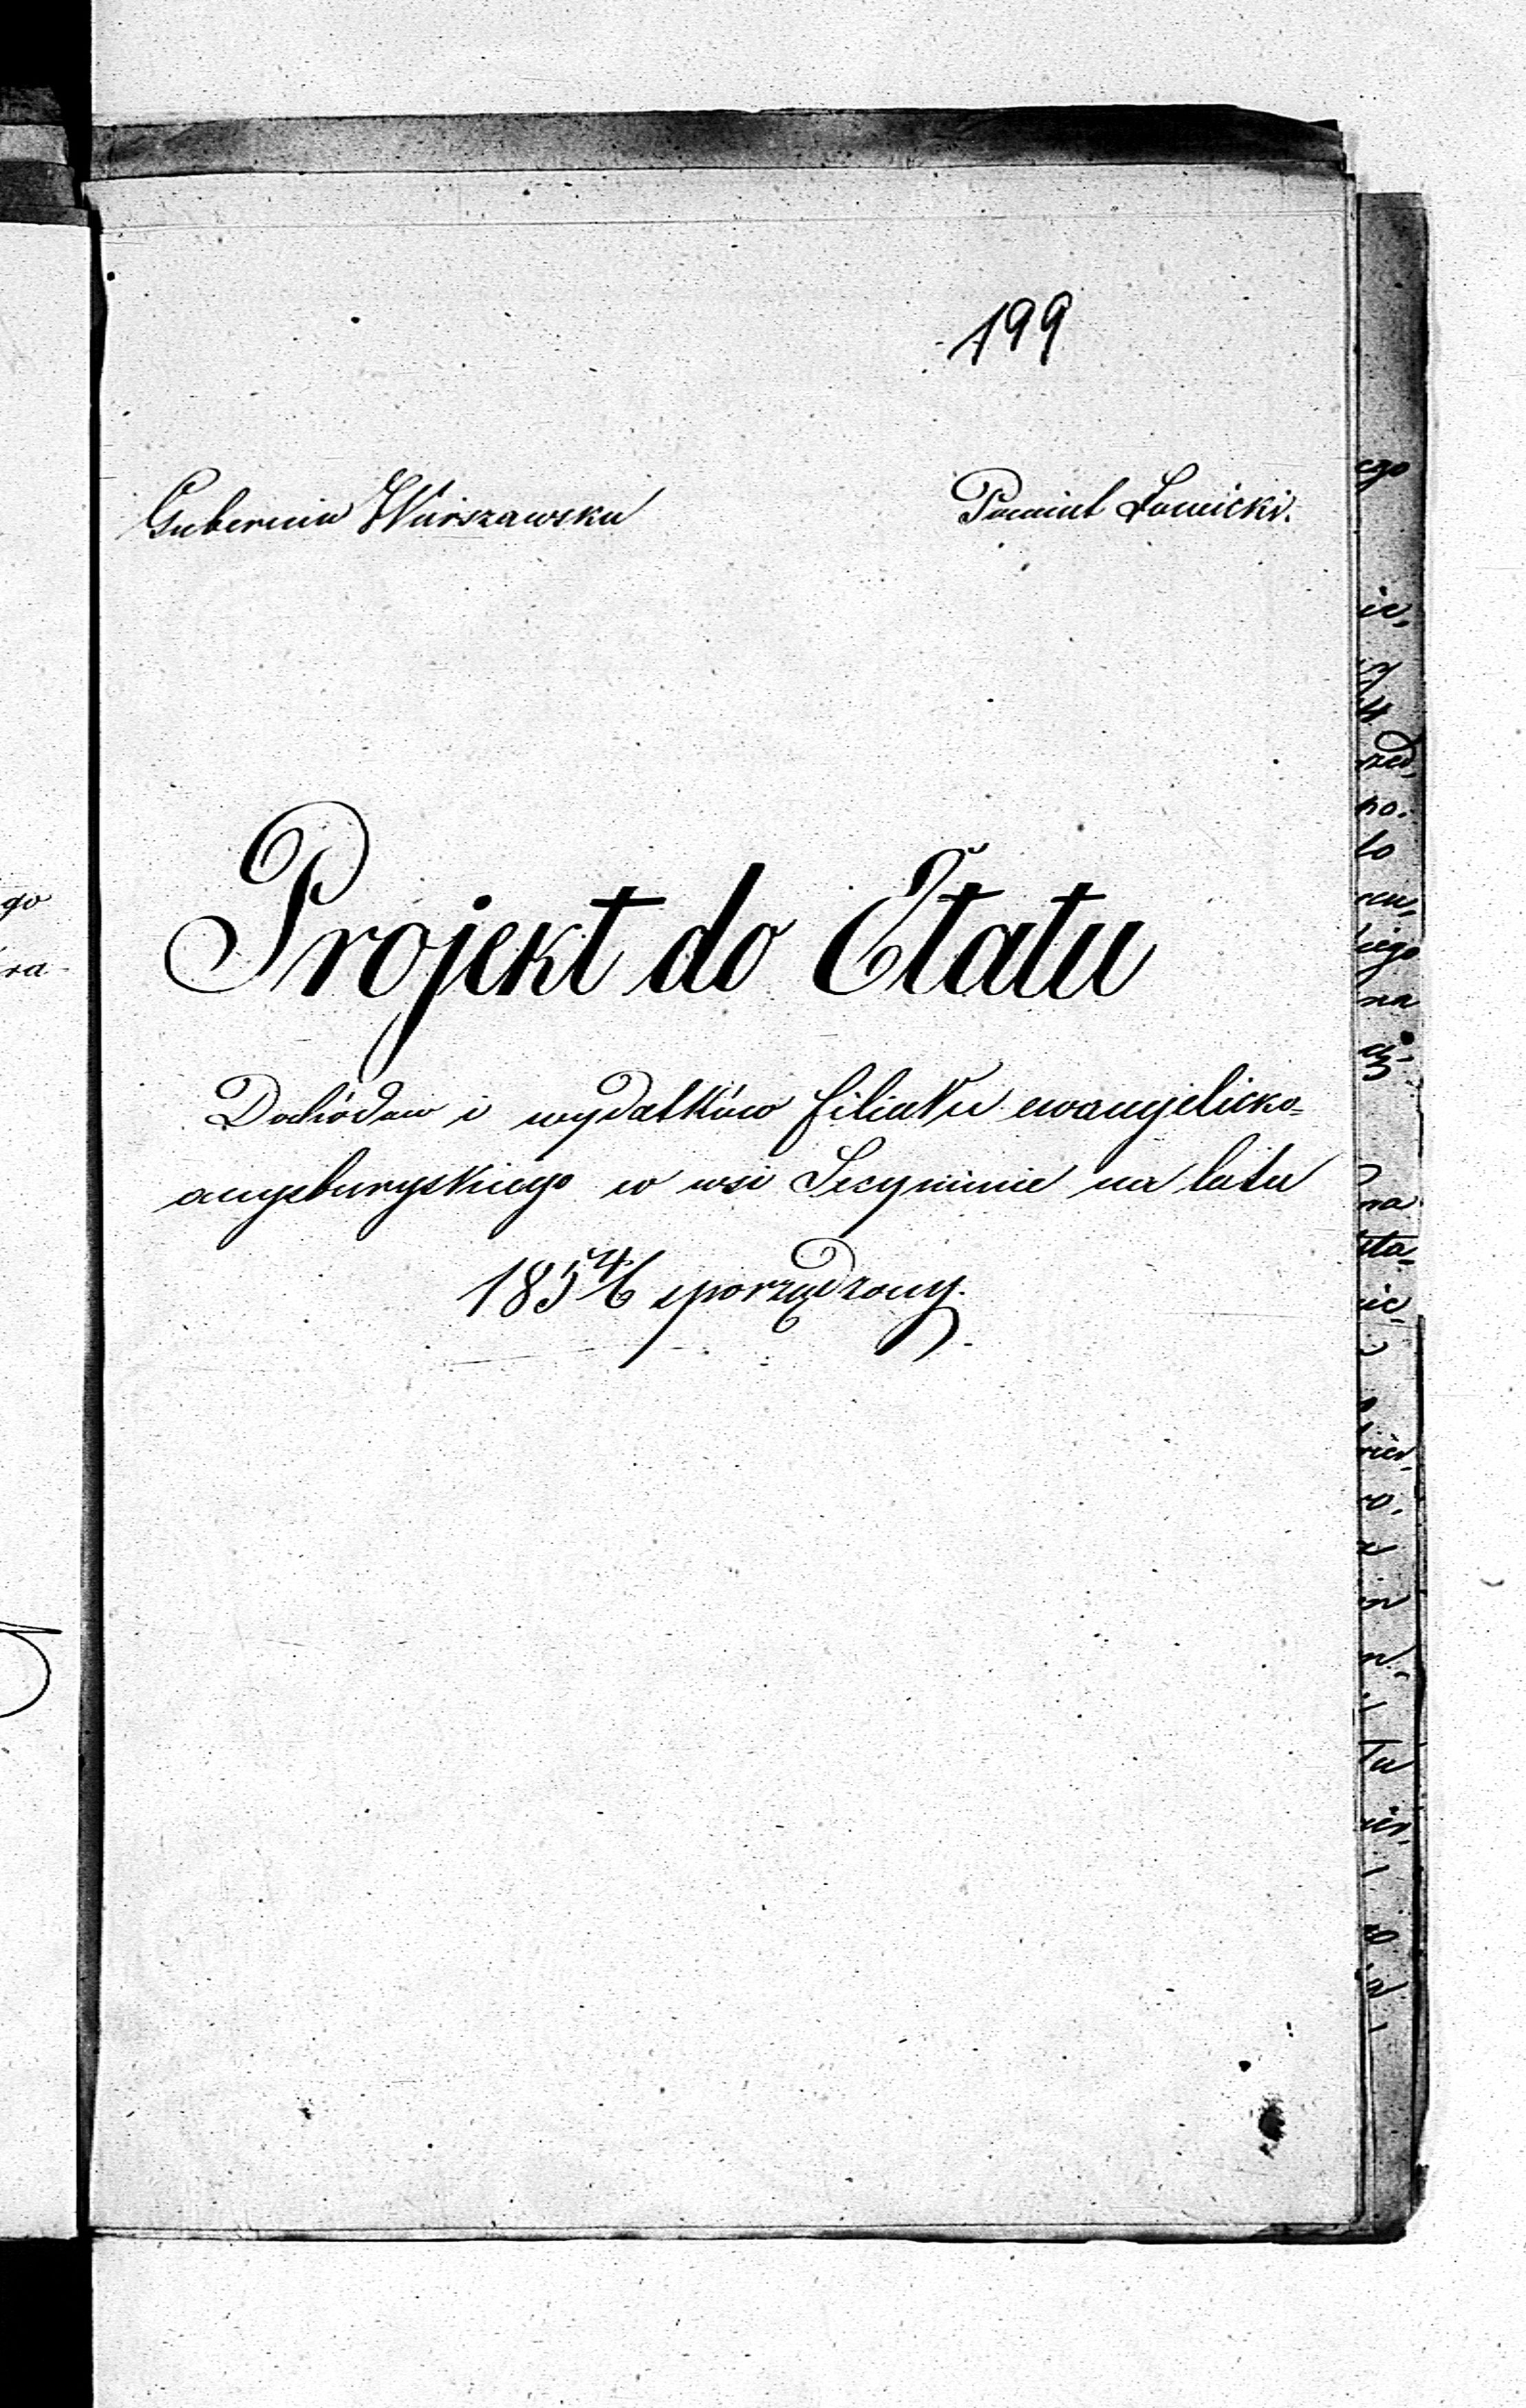 199
Gubernia Warszawska
Powiat Łowicki.
Projekt do Etatu
Dochódow i wydatków filiału ewangelicko=
augsburgskiego w wsi Secyminie na lata
185 4/6 sporządzony.